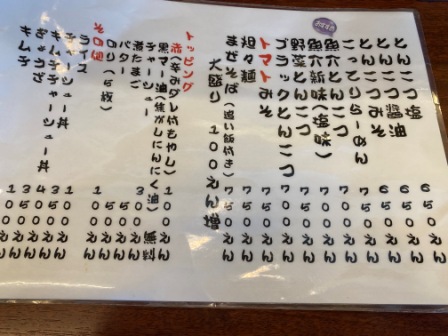 おすすめ
とんこつ 650えん
とんこつ醤油 650えん
とんこつみそ 650えん
こってりらーめん 700えん
魚介とんこつ 750えん
魚介新味(塩味) 750えん
野菜とんこつ 750えん
ブラックとんこつ 750えん
トマトみそ 750えん
坦々麺 750えん
まぜそば(追い飯付き) 750えん
大盛り 100えん増
トッピング
赤(辛みダレ付もやし) 100えん
黒マー油(焦がしにんにく油) 無料
チャーシュー 300えん
煮たまご
バター
のり(5枚)
その他
ライス
チャーシュー丼
キムチチャーシュー丼
ぎょうざ
キムチ